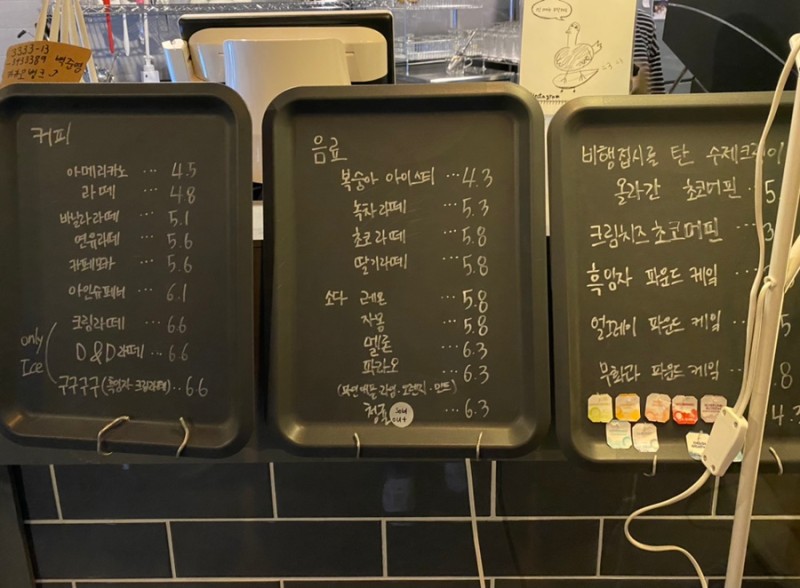 커피
아메리카노 ... 4.5
라떼 ... 4.8
바닐라라떼 ... 5.1
연유라떼 ... 5.6
카페모카 ... 5.6
아인슈페너 ... 6.1
only
Ice
크림라떼 ... 6.6
D&D라떼 ... 6.6
구구구구(흑임자 크림라떼) .. 6.6
음료
복숭아 아이스티 ... 4.3
녹차라떼 ... 5.3
초코라떼 ... 5.8
딸기라떼 ... 5.8
소다 레몬 ... 5.8
자몽 ... 5.8
멜론 ... 6.3
파라오 ... 6.3
(파인애플·라임·오렌지·민트)
청귤 Sold out ... 6.3
비행접시를 탄 수제
올라간 초코머핀 ... 5
크림치즈 초코머핀
흑임자 파운드 케잌 ...
얼그레이 파운드 케잌 ... 5
무화과 파운드 케잌 ... .8
4.3